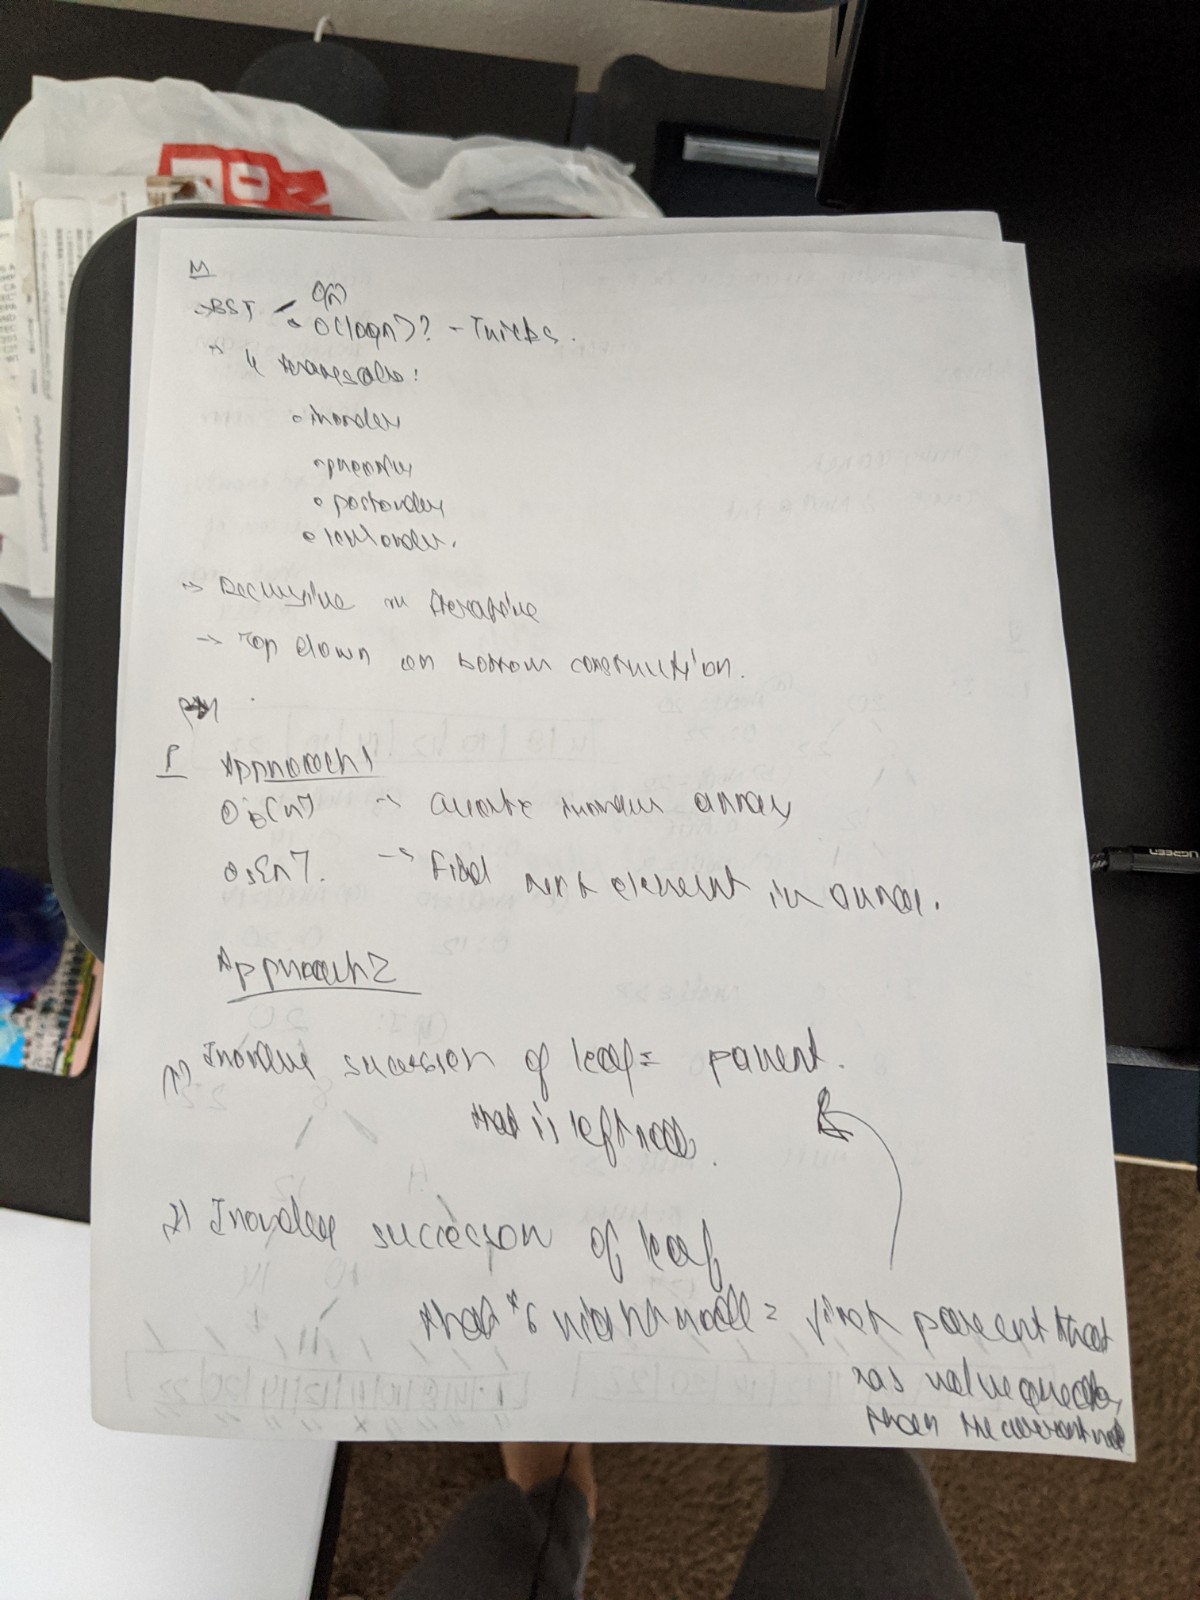 M
→ BST
O(n)
O(logn)? - Tricks.
→ 4 traversals:
inorder
preorder
postorder
levelorder.
→ Recursive or iterative
→ Top down or bottom construction.
P Approach 1
O(n) → create inorder array
Os(n). → Find next element in array.
Approach 2
1) Inorder successor of leaf = parent.
that is left node.
2) Inorder successor of leaf
that is right node = first parent that
has value greater
than the current node
UGREEN